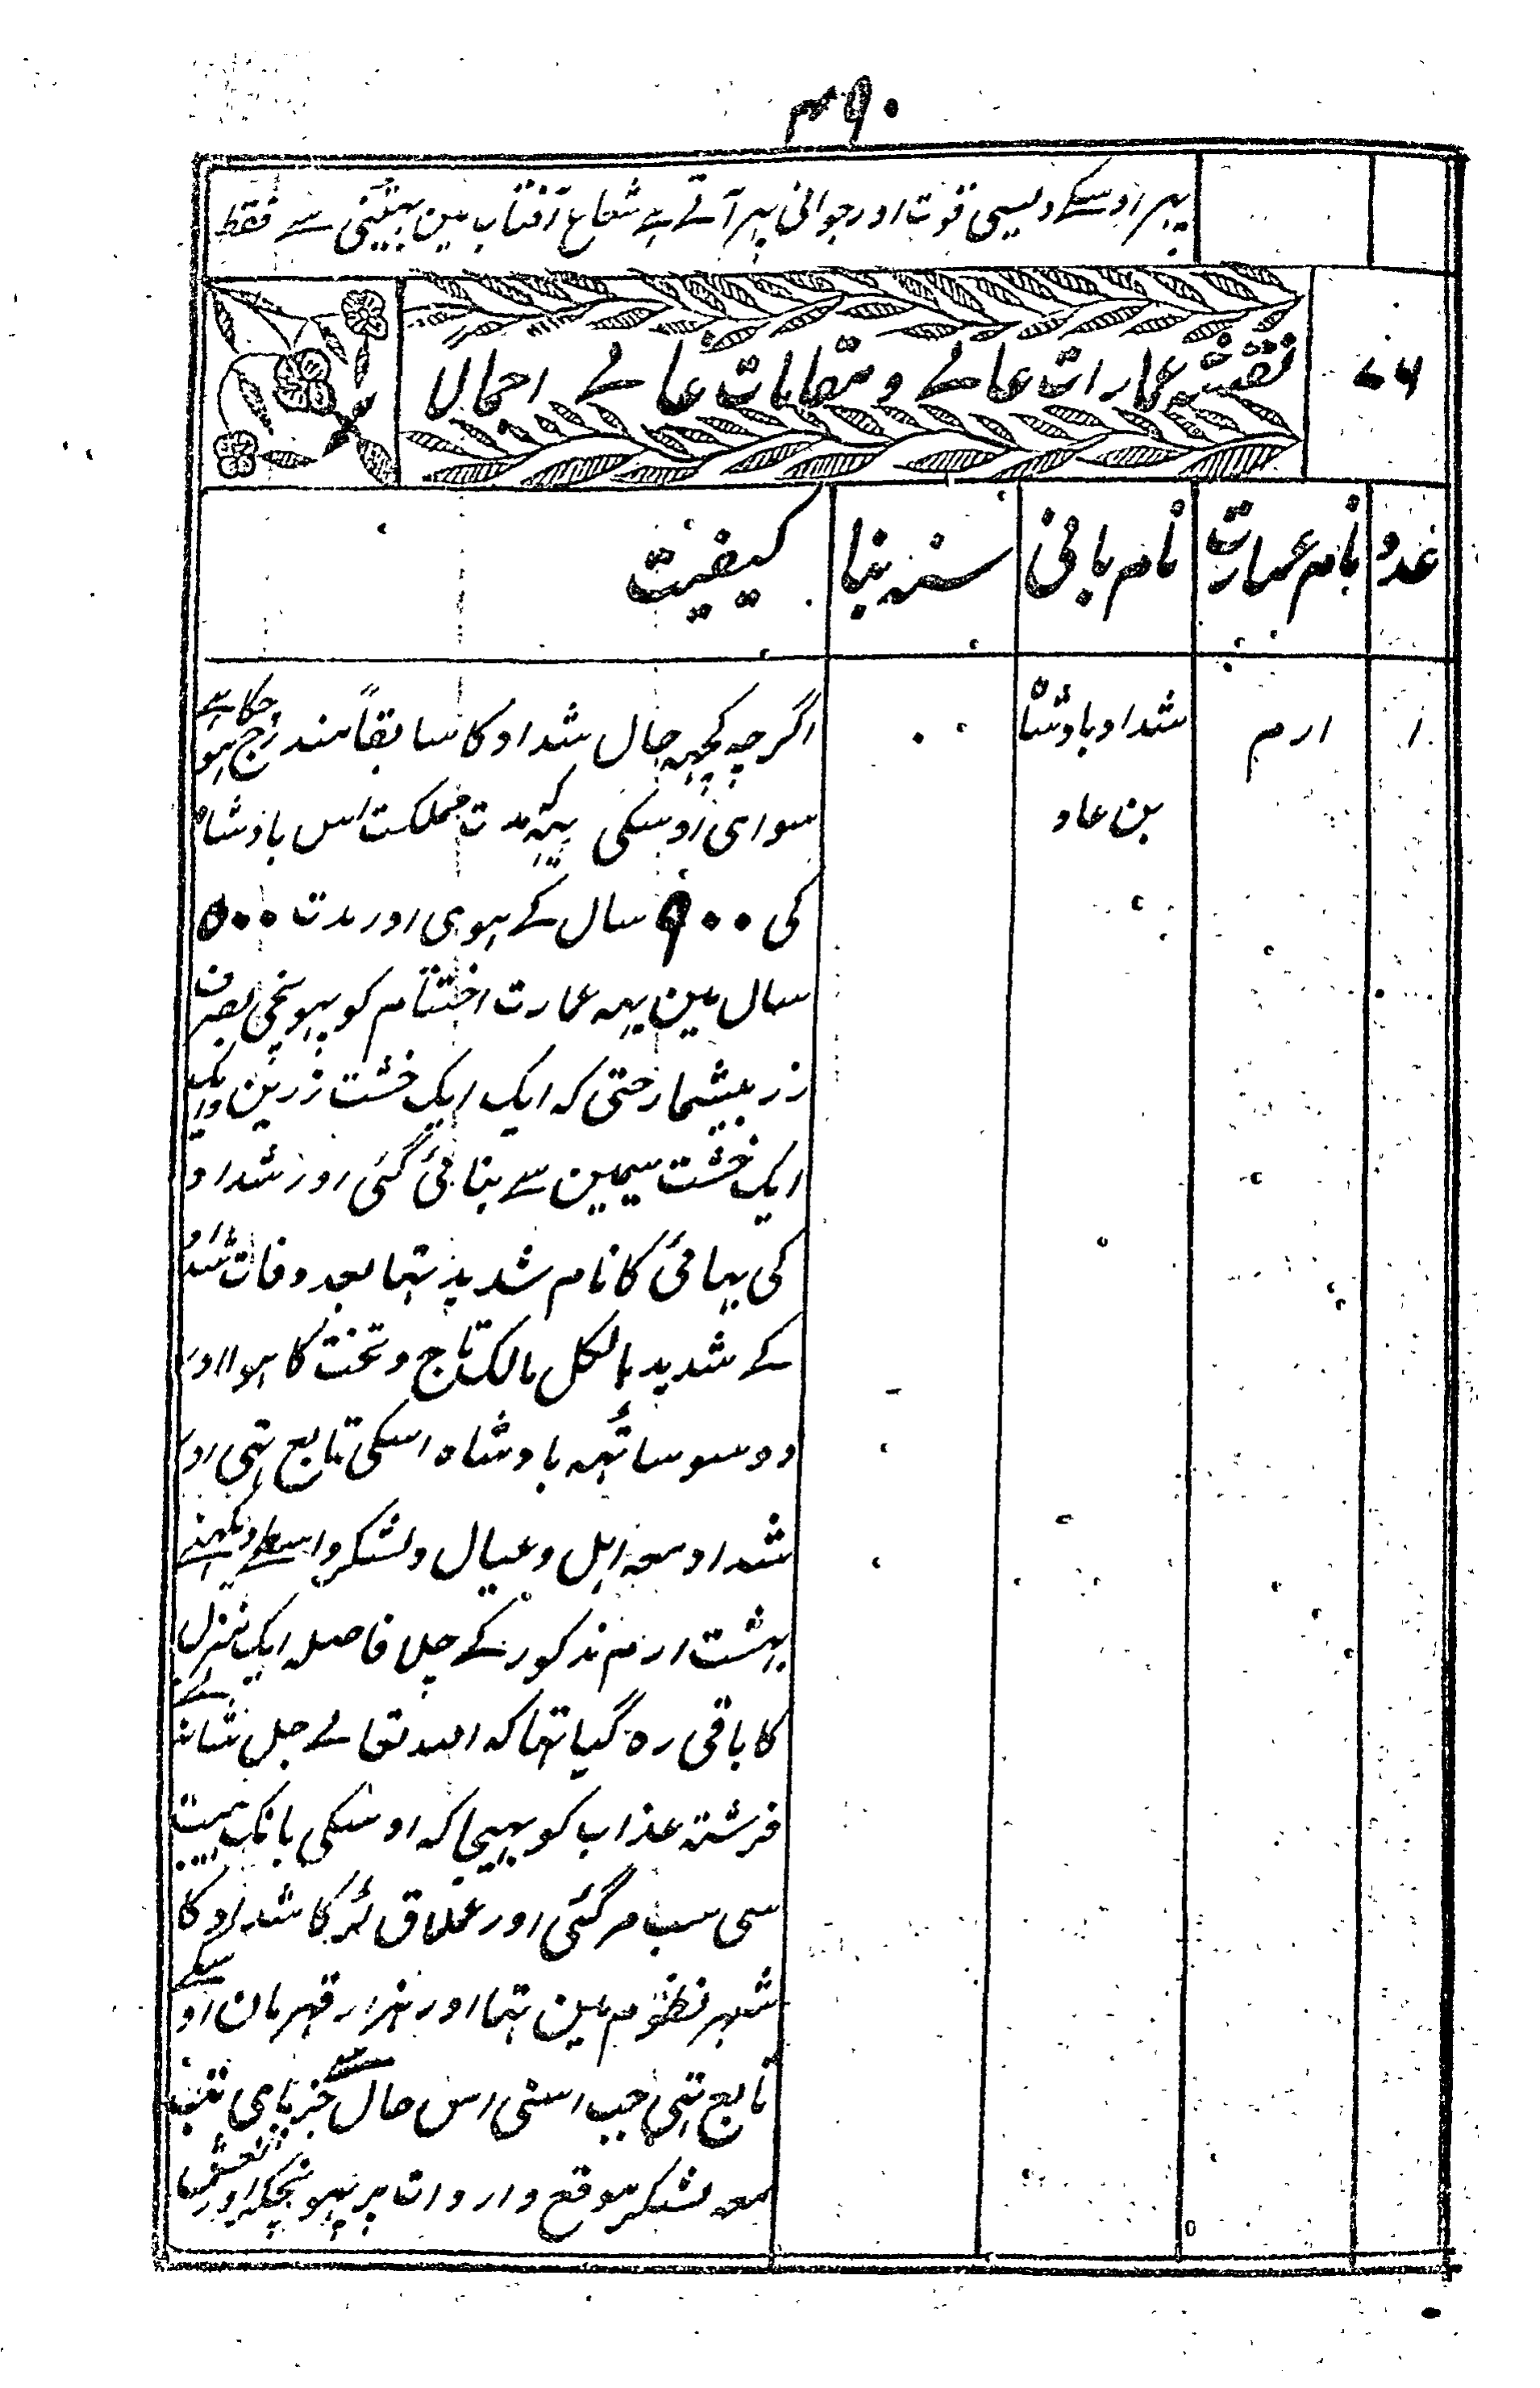 ۴۹۰
پہر اوسکے ویسی قوت اور جوانی پہر آتے ہے شعاع آفتاب مین بیٹہنی سے فقط
۷۶
نقشہ عمارات عالے و مقامات عالے اجمالاً
عدد
نام عمارت
نام بانی
سنہ بنا
کیفیت
۱
ارم
شداد بادشاہ
بن عاد
اگرچہ کچہہ حال شداد کا سابقاً مندرج ہو چکا ہے
سواہی اوسکی یہہ مدت مملکت اس بادشاہ
کی ۹۰۰ سال کے ہوی اور مدت ۵۰۰
سال مین یہہ عمارت اختتام کو پہونچی بصرف
زر بیشمار حتی کہ ایک ایک خشت زرین و ایک
ایک خشت سیمین سے بنائی گئی اور شداد
کی بہائی کا نام شدید تہا بعد وفات شداد
کے شدید بالکل مالک تاج و تخت کا ہوا اور
دوسو ساٹہہ بادشاہ اسکی تابع تہی اور
شداد معہ اہل و عیال و لشکر واسطے دیکہنے
بہشت ارم مذکور کے چلا فاصلہ ایک منزل
کا باقی رہ گیا تہا کہ اللہ تعالے جل شانہ نے
فرشتہ عذاب کو بہیجا کہ اوسکی بانک ہیبت
سی سب مر گئی اور عملاق لڑکا شداد کا
شہر نظوم مین تہا اور ہزار قہرمان اوسکے
تابع تہی جب اسنی اس حال کی خبر پای
معہ لشکر موقع واردات پر پہونچکر اور نعش